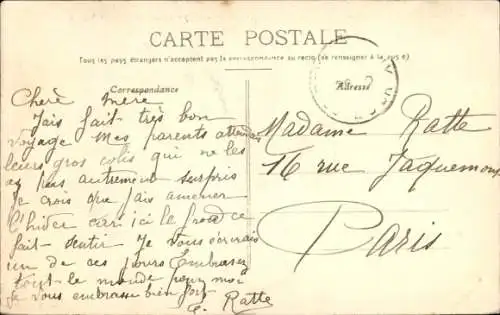 CARTE POSTALE
Tous les pays étrangers n'acceptent pas la correspondance au recto (se renseigner à la poste)
Correspondance
Adresse
Chere mere
Jais fait très bon
voyage Mes parents attendais
leurs gros colis qui ne les
as pas autrement surpris
Je crois que jais amener
l'hiver car ici le froid ce
fait sentir Je vous écrirais
un de ces jours Embrasez
tout le monde pour moi
Je vous embrasse bien fort
E. Ratte
Madame Ratte
16 rue Jaquemont
Paris